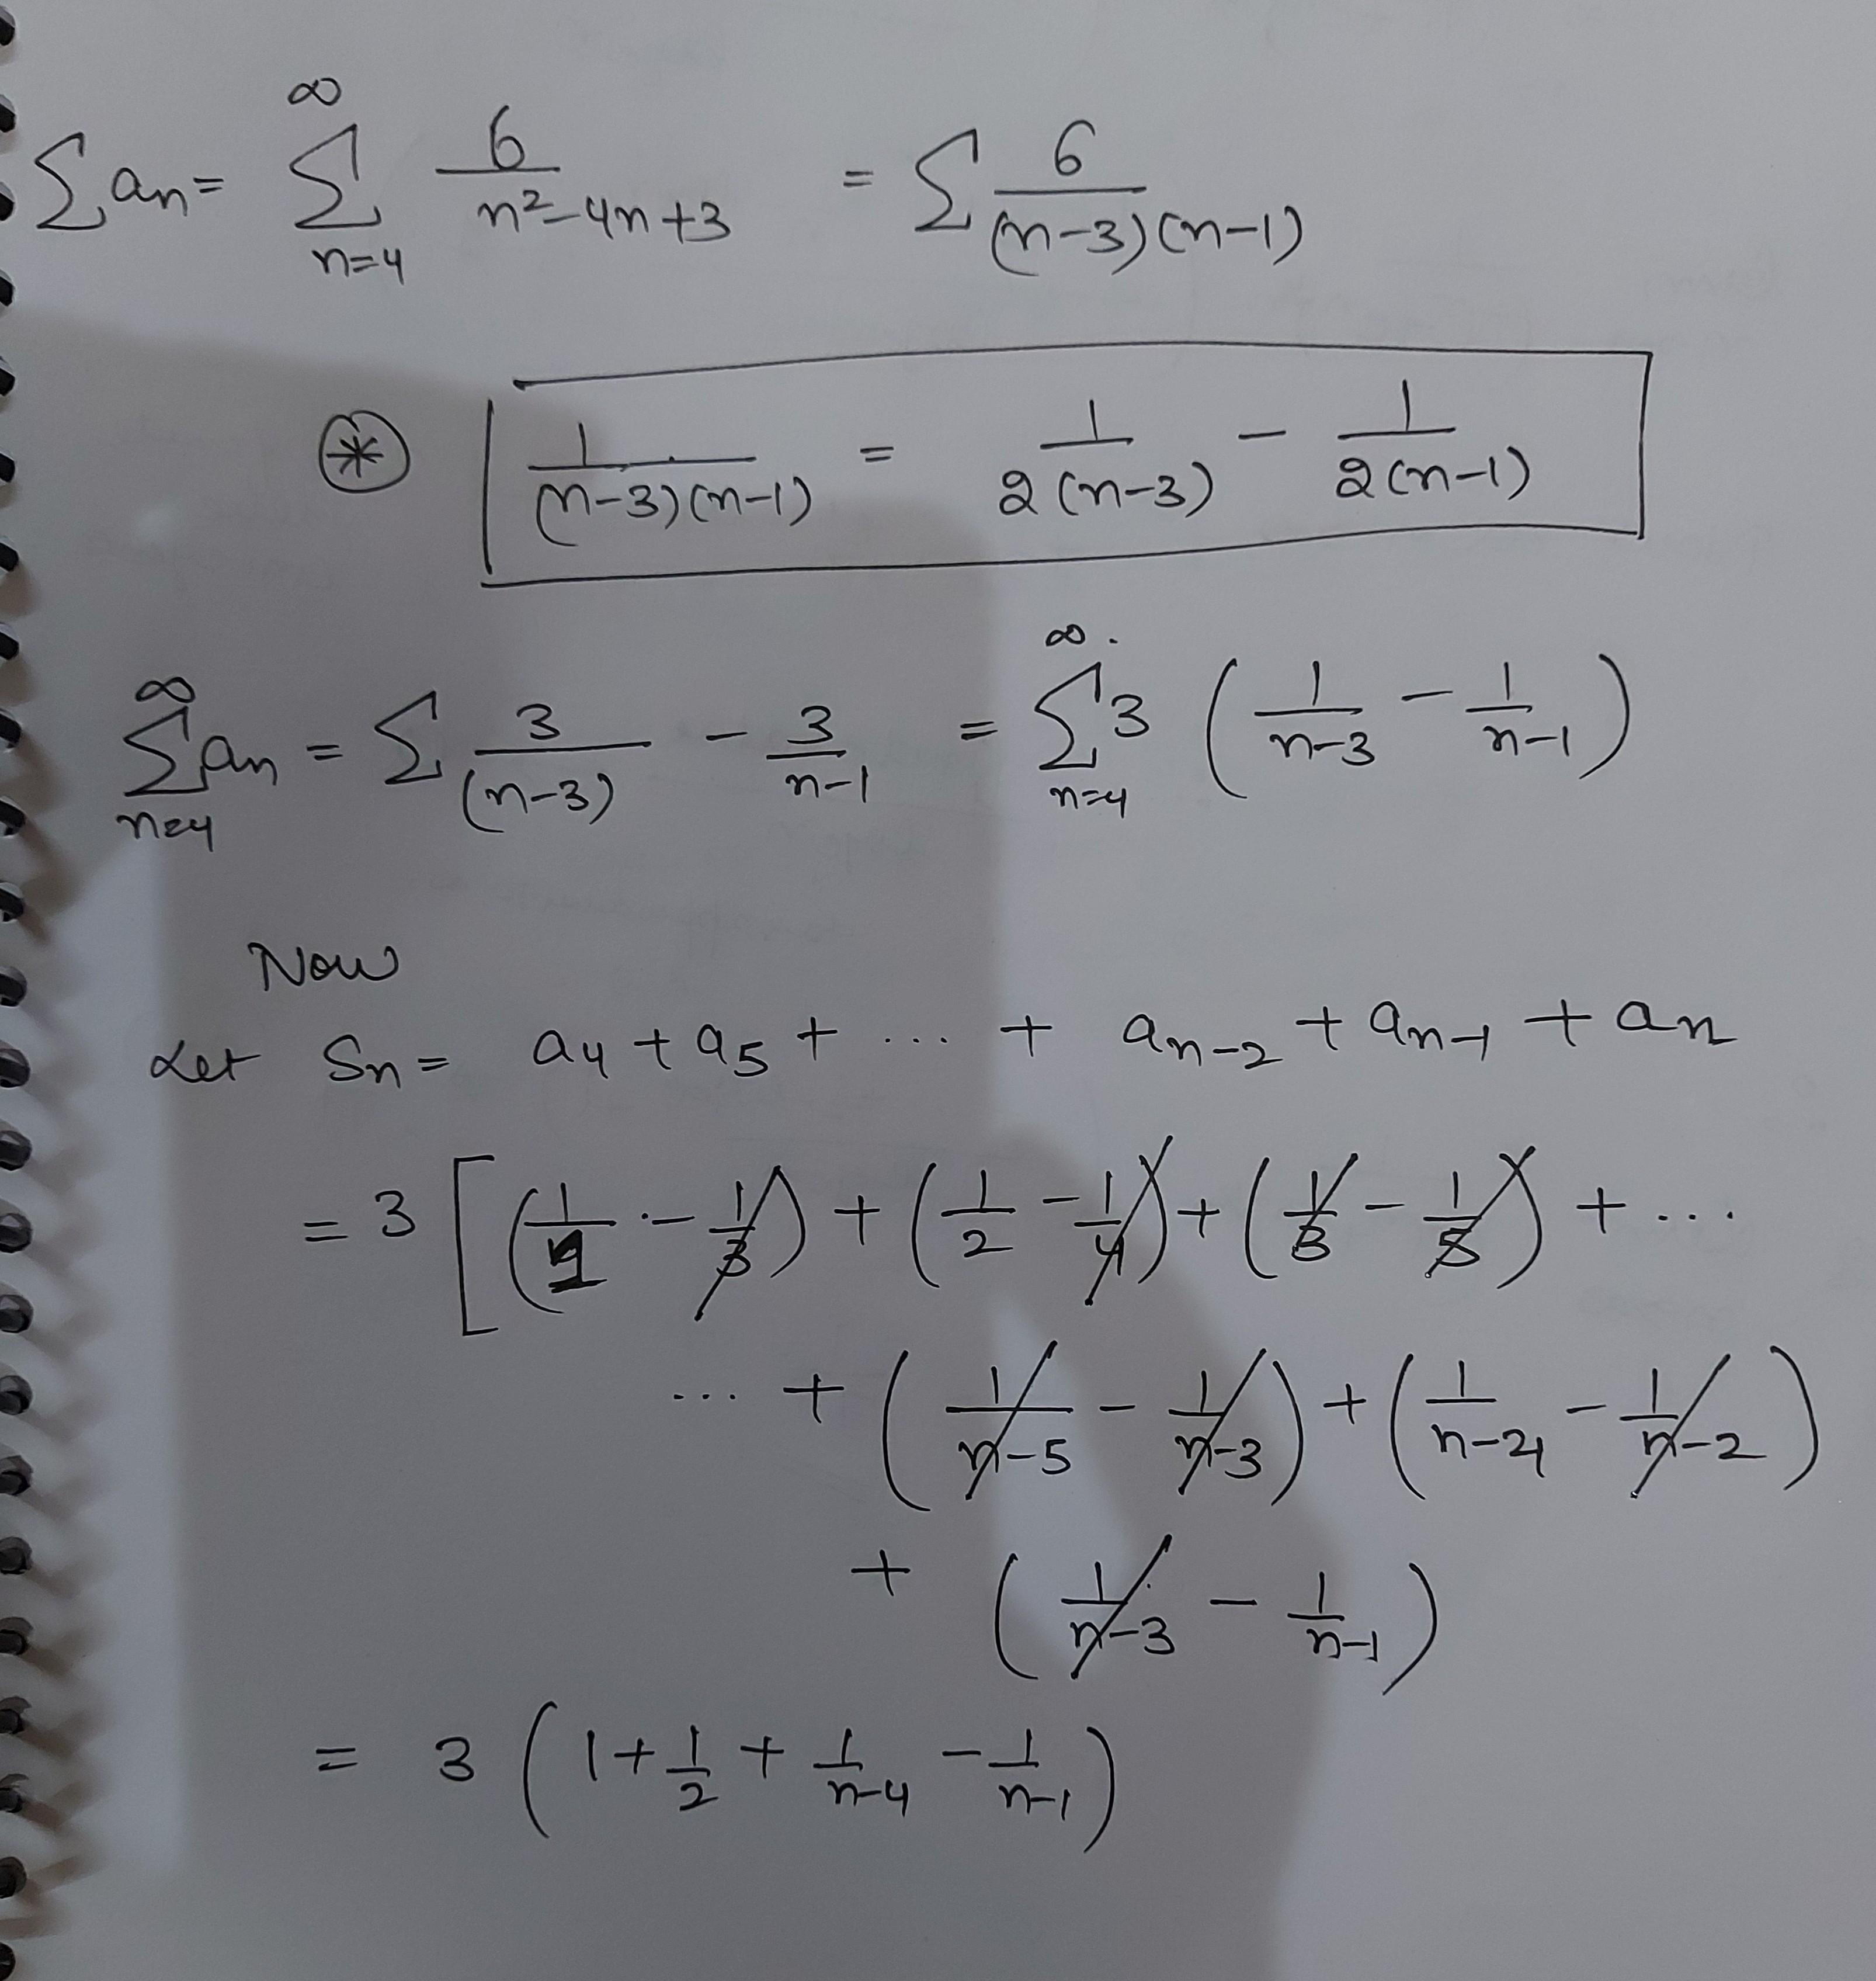 ∑ an = ∑_{n=4}^{∞} 6/(n²-4n+3) = ∑ 6/((n-3)(n-1))
⊛ 1/((n-3)(n-1)) = 1/(2(n-3)) - 1/(2(n-1))
∑_{n=4}^{∞} an = ∑ 3/(n-3) - 3/(n-1) = ∑_{n=4}^{∞} 3 (1/(n-3) - 1/(n-1))
Now
Let Sn = a4 + a5 + ... + an-2 + an-1 + an
= 3 [(1/1 - 1/3) + (1/2 - 1/4) + (1/3 - 1/5) + ...
... + (1/(n-5) - 1/(n-3)) + (1/(n-4) - 1/(n-2))
+ (1/(n-3) - 1/(n-1))
= 3 (1 + 1/2 + 1/(n-4) - 1/(n-1))